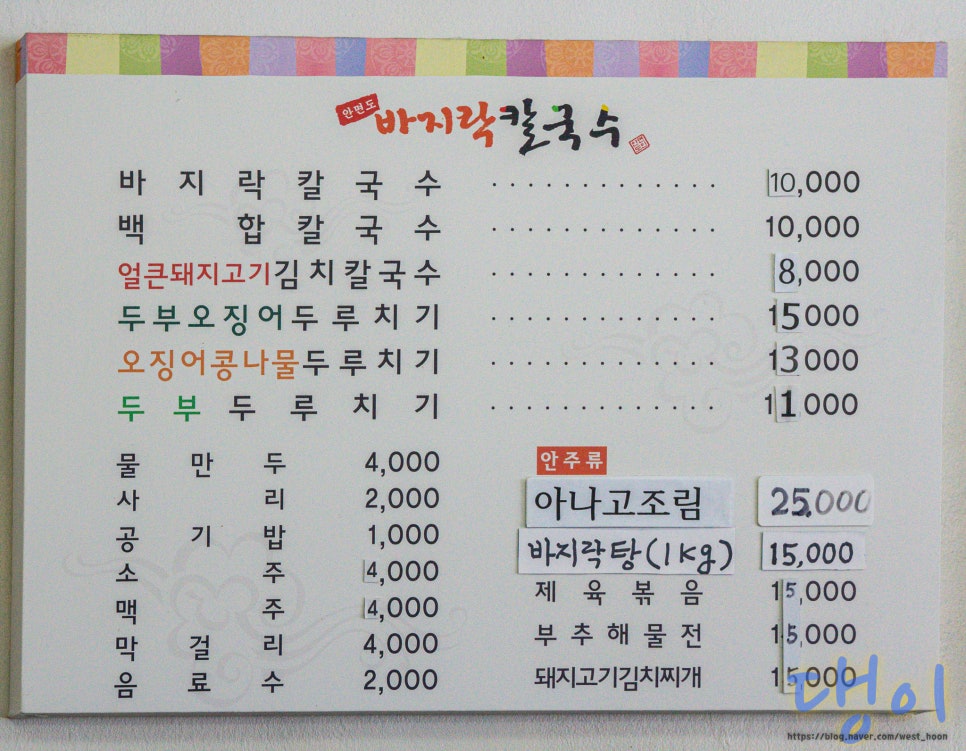 안면도 바지락칼국수
바지락칼국수 ............. 10,000
백합칼국수 ............. 10,000
얼큰돼지고기김치칼국수 ............. 8,000
두부오징어두루치기 ............. 15000
오징어콩나물두루치기 ............. 13000
두부두루치기 ............. 11000
물만두 4,000
사리 2,000
공기밥 1,000
소주 4,000
맥주 4,000
막걸리 4,000
음료수 2,000
안주류
아나고조림 25,000
바지락탕(1Kg) 15,000
제육볶음 15,000
부추해물전 15,000
돼지고기김치찌개 15,000
댕이
https://blog.naver.com/west_hoon